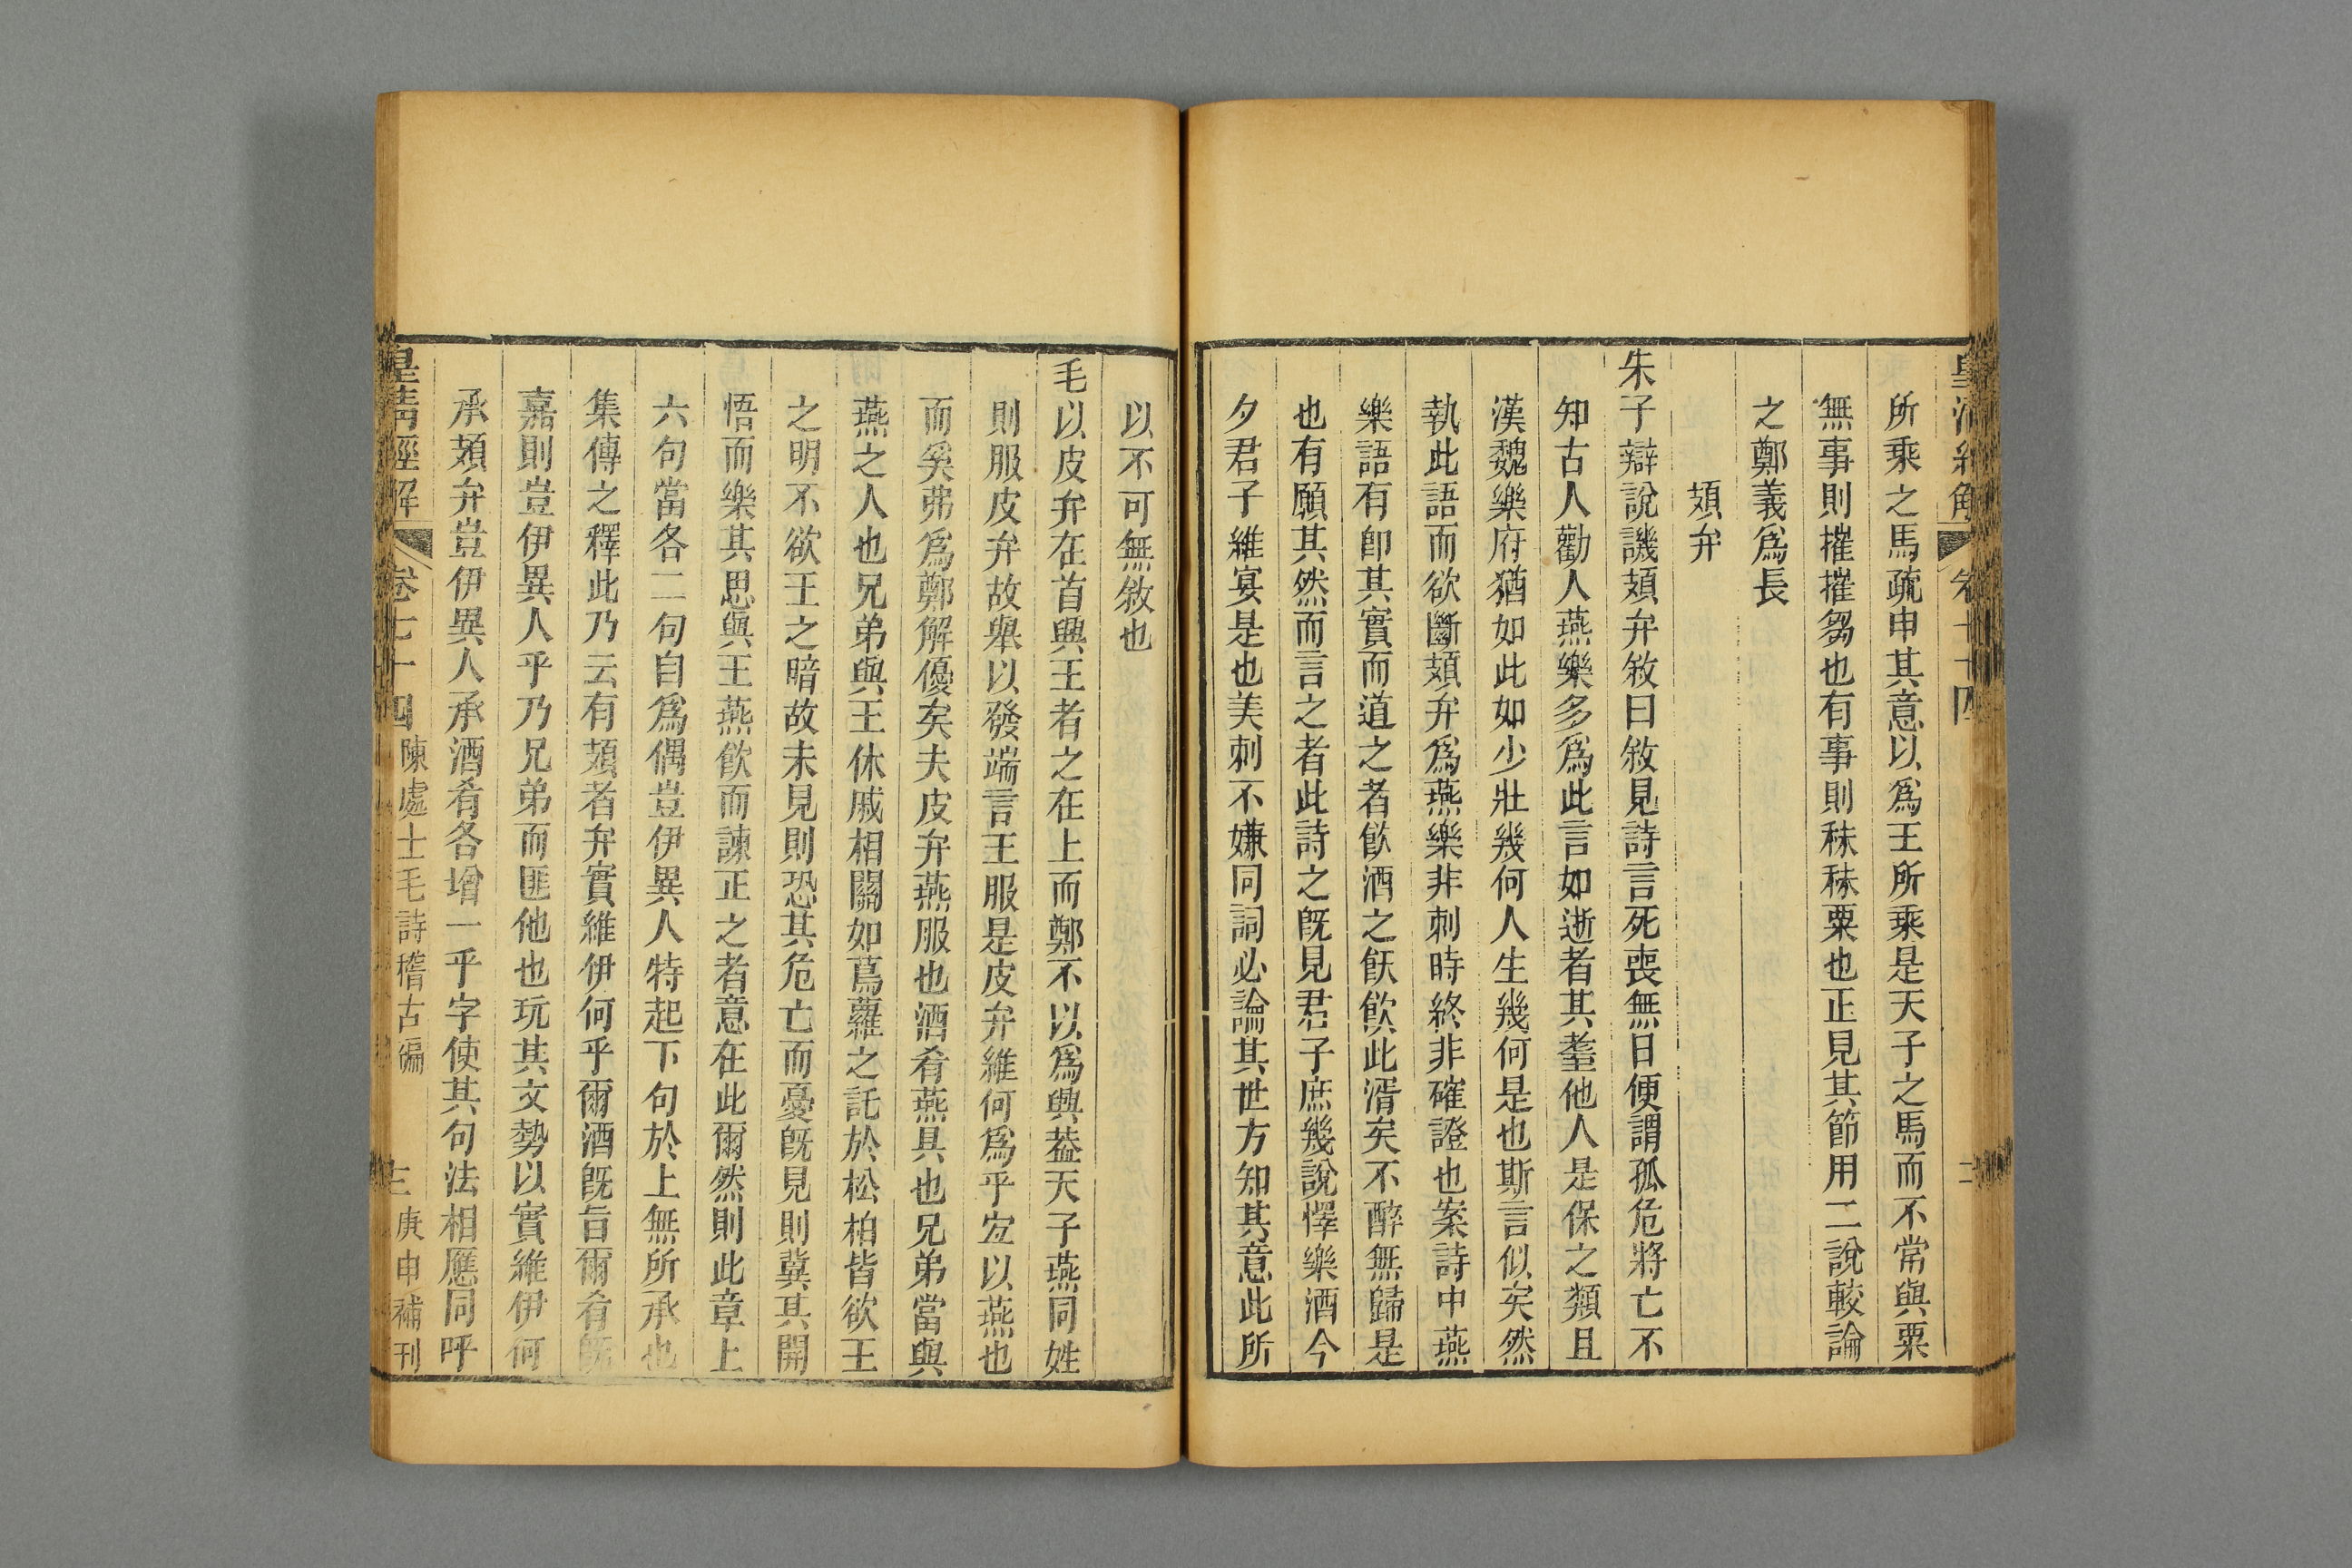 皇清經解 卷七十四 二
所乘之馬疏申其意以爲王所乘是天子之馬而不常與粟
無事則摧摧芻也有事則秣秣粟也正見其節用二說較論
之鄭義爲長
頍弁
朱子辯說譏頍弁敘曰敘見詩言死喪無日便謂孤危將亡不
知古人勸人燕樂多爲此言如逝者其耋他人是保之類且
漢魏樂府猶如此如少壯幾何人生幾何是也斯言似矣然
執此語而欲斷頍弁爲燕樂非刺時終非確證也案詩中燕
樂語有卽其實而道之者飮酒之飫飮此湑矣不醉無歸是
也有願其然而言之者此詩之旣見君子庶幾說懌樂酒今
夕君子維宴是也美刺不嫌同詞必論其世方知其意此所
以不可無敘也
毛以皮弁在首興王者之在上而鄭不以爲興葢天子燕同姓
則服皮弁故舉以發端言王服是皮弁維何爲乎宐以燕也
而奚弗爲鄭解優矣夫皮弁燕服也酒肴燕具也兄弟當與
燕之人也兄弟與王休戚相關如蔦蘿之託於松柏皆欲王
之明不欲王之暗故未見則恐其危亡而憂旣見則冀其開
悟而樂其思與王燕飮而諫正之者意在此爾然則此章上
六句當各二句自爲偶豈伊異人特起下句於上無所承也
集傳之釋此乃云有頍者弁實維伊何乎爾酒旣旨爾肴旣
嘉則豈伊異人乎乃兄弟而匪他也玩其文勢以實維伊何
承頍弁豈伊異人承酒肴各增一乎字使其句法相應同呼
皇清經解 卷七十四 陳處士毛詩稽古編 三 庚申補刊